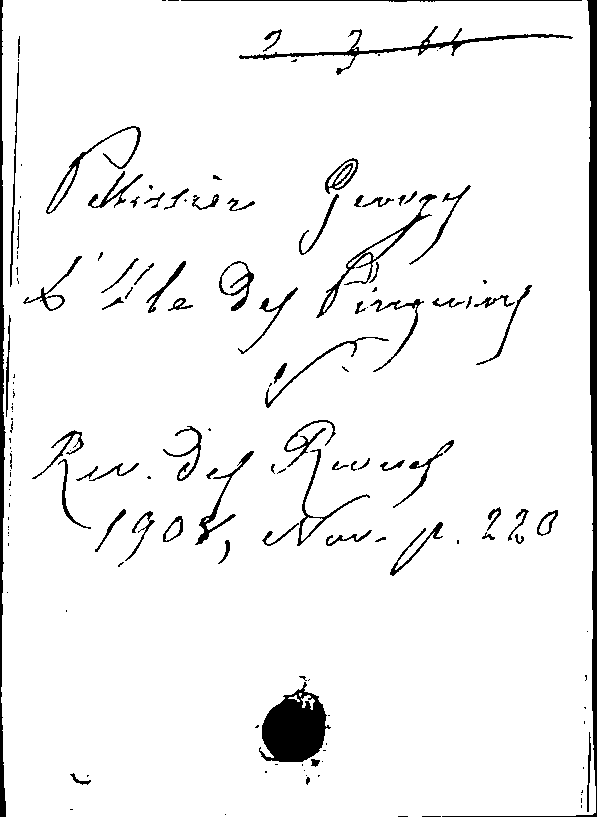 2. 3 64
Pellissier Georges
L'Ile des Pingouins
Rev. des Revues
1908, Nov. p. 220